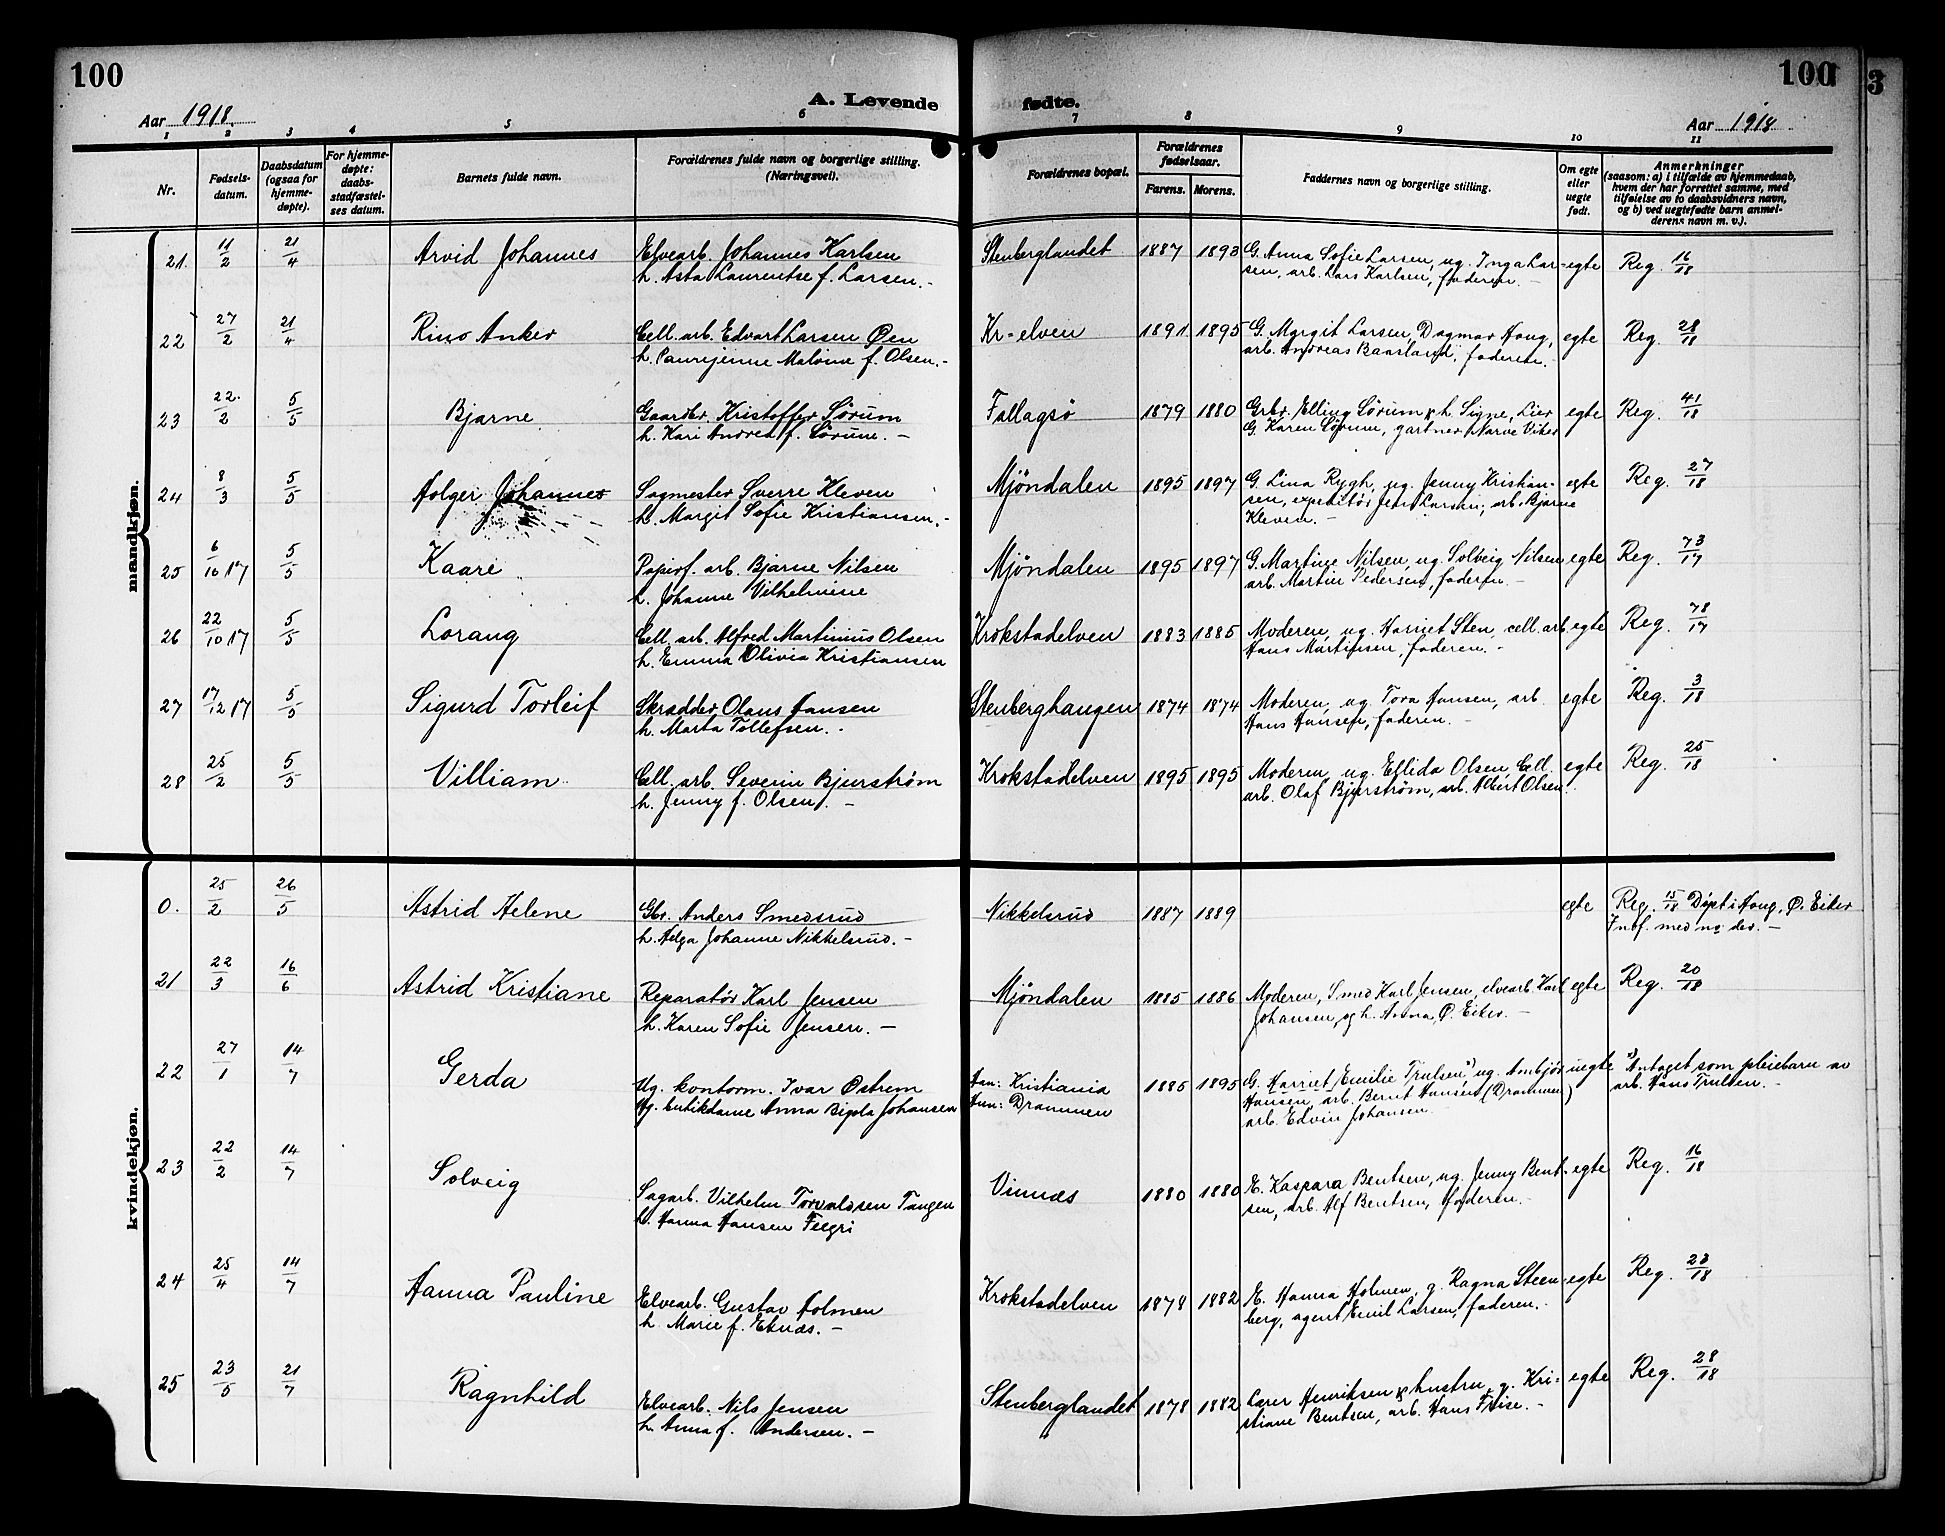 100
100
3
Aar 1918.
A. Levende fødte.
Aar 1918
1 2 3 4 5 6 7 8 9 10 11
Nr.
Fødsels-
datum.
Daabsdatum
(ogsaa for
hjemme-
døpte).
For hjemme-
døpte:
daabs-
stadfæstel-
ses datum.
Barnets fulde navn.
Forældrenes fulde navn og borgerlige stilling.
(Næringsvei).
Forældrenes bopæl.
Forældrenes
fødselsaar.
Farens. Morens.
Faddernes navn og borgerlige stilling.
Om egte
eller
uegte
født.
Anmerkninger
(saasom: a) i tilfælde av hjemmedaab,
hvem der har forrettet samme, med
tilføielse av to daabsvidners navn,
og b) ved uegtefødte barn anmel-
derens navn m. v.).
mandkjøn.
21. 11/2 21/4 Arvid Johannes Elvearb. Johannes Karlsen Stenberglandet 1887 1893 G. Anna Sofie Larsen, ug. Inga Lar- egte Reg. 16/18
h. Asta Laurentse f. Larsen.- sen, arb. Lars Karlsen, faderen. -
22 27/2 21/4 Rino Anker Cell. arb. Edvart Larsen Øen Kr=elven 1891 1895 G. Margit Larsen, Dagmar Haug, egte Reg. 28/18
h. Malvine f. Olsen.- arb. Andreas Baasland, faderen.
23 22/2 5/5 Bjarne Gaardbr. Kristoffer Sørum Fallagsø 1879 1880 Grbr. Elling Sørum & h. Signe, Lier egte Reg. 41/18
h. Kari Andrea f. Sørum. - G. Karen Sørum, gartner Narve Viker
24 8/3 5/5 Holger Johannes Sagmester Sverre Kleven Mjöndalen 1895 1897 G. Lina Rygh, ug. Jenny Kristian- egte Reg. 27/18
h. Margit Sofie Kristiansen.- sen, expeditör Jens Larsen, arb. Bjarne
Kleven. -
25 6/10 17 5/5 Kaare Papirf. arb. Bjarne Nilsen Mjöndalen 1895 1897 G. Martine Nilsen, ug. Solveig Nilsen egte Reg. 73/17
h. Johanne Vilhelmine arb. Martin Pedersen, faderen -
26 22/10 17 5/5 Lorang Cell. arb. Alfred Martinius Olsen Krokstadelven 1883 1885 Moderen, ug. Harriet Sten, cell. arb. egte Reg. 78/17
h. Emma Olivia Kristiansen Hans Martinsen, faderen. -
27 17/12 17 5/5 Sigurd Torleif Skrædder Olaus Hansen Stenberghaugen 1874 1874 Moderen, ug. Tora Hansen, arb. egte Reg. 3/18
h. Marta Tollefsen. - Hans Hansen, faderen. -
28 25/2 5/5 Villiam Cell. arb. Severin Bjurström Krokstadelven 1895 1895 Moderen, ug. Ellida Olsen, Cell. egte Reg. 25/18
h. Jenny f. Olsen. - arb. Olaf Bjurström, arb. Albert Olsen.
kvindekjøn.
0. 25/2 26/5 Astrid Helene Gbr. Anders Smedsrud Nikkelsrud 1887 1889 egte Reg. 15/18 Döpt i Haug, Ø. Eiker
h. Helga Johanne Nikkelsrud. - Indf. med no der. -
21 22/3 16/6 Astrid Kristiane Reparatör Karl Jensen Mjöndalen 1885 1886 Moderen, Smed Karl Jensen, elvearb. Karl egte Reg. 20/18
h. Karen Sofie Jensen. - Johansen, og h. Anna, Ø. Eiker. -
22 27/1 14/7 Gerda Ug. kontorm. Ivar Östrem Han: Kristiania 1885 1895 G. Harriet Emilie Trulsen,1) ug. Ambjör uegte 1) Antaget som pleiebarn av
Ug. butikdame Anna Johansen Hun: Drammen Hansen, arb. Bernt Hansen (Drammen) arb. Hans Trulsen. -
arb. Edvin Johansen
23 22/2 14/7 Solveig Sagarb. Vilhelm Torvaldsen Tangen Vinnæs 1880 1880 E. Kaspara Bentsen, ug. Jenny Bent- egte Reg. 16/18
h. Hanna Hansen Feegri sen, arb. Alf Bentsen, faderen. -
24 25/4 14/7 Hanna Pauline Elvearb. Gustav Holmen Krokstadelven 1878 1882 E. Hanna Holmen, g. Ragna Steen- egte Reg. 23/18
h. Marie f. Eknæs. - berg, agent Emil Larsen, faderen. -
25 23/5 21/7 Ragnhild Elvearb. Nils Jensen Stenberglandet 1878 1882 Lærer Henriksen & hustru, g. Kri- egte Reg. 28/18
h. Anna f. Andersen. - stiane Bentsen, arb. Hans Friise. -